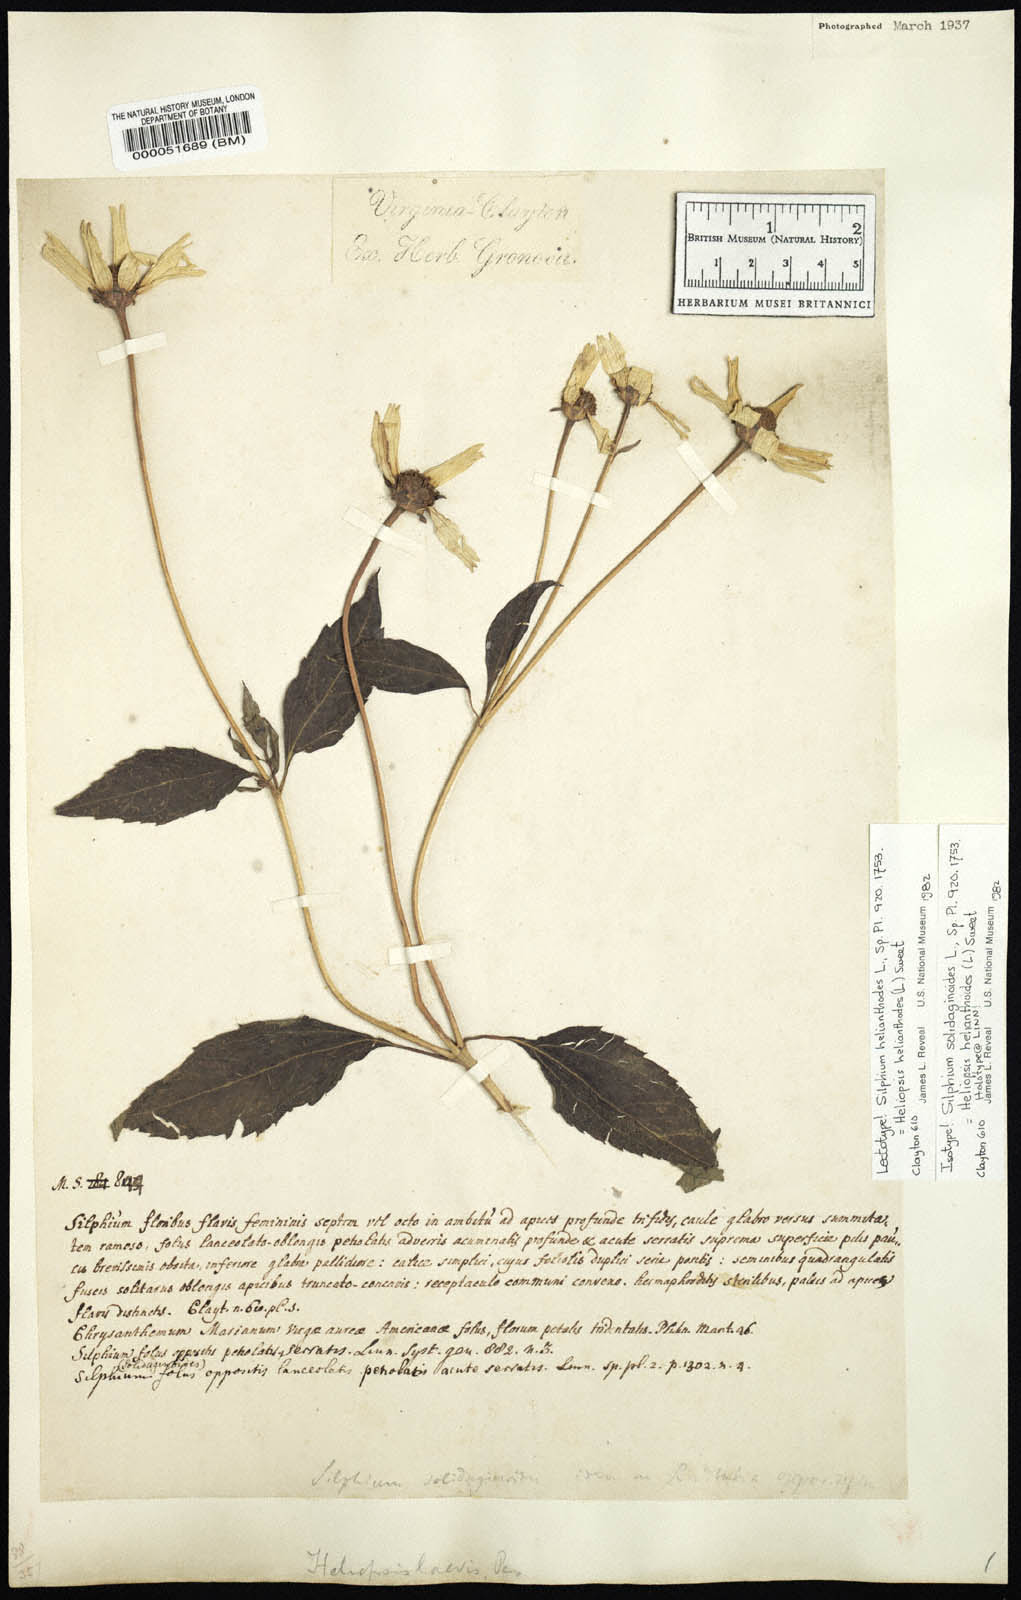 Photographed March 1937
THE NATURAL HISTORY MUSEUM, LONDON
DEPARTMENT OF BOTANY
000051689 (BM)
Virginia - Clayton
Ex. Herb. Gronovii.
1 2
BRITISH MUSEUM (NATURAL HISTORY)
1 2 3 4 5
HERBARIUM MUSEI BRITANNICI
Lectotype! Silphium helianthodes L., Sp. Pl. 920. 1753.
= Heliopsis helianthodes (L.) Sweet
Clayton 610 James L. Reveal U.S. National Museum 1982
Isotype! Silphium solidaginoides L., Sp. Pl. 920. 1753.
= Heliopsis helianthoides (L.) Sweet
Holotype @ LINN!
Clayton 610 James L. Reveal U.S. National Museum 1982
M. S.
Silphium floribus flavis femininis septem vel octo in ambitu ad apices profunde trifidis, caule glabro versus summita-
tem ramoso, foliis lanceolato-oblongis petiolatis adversis acuminatis profunde & acute serratis suprema superficie pilis pau-
cis brevissimis obsita, inferiore glabra pallidiore: calice simplici, cujus foliolis duplici serie positis: seminibus quadrangulatis
fuscis solitariis oblongis apicibus truncato-concavis: receptaculo communi convexo. hermaphroditis sterilibus, paleis ad apices
flavis distinctis. Clayt. n. 610. pl. s.
Chrysanthemum Marianum Virgæ aureæ Americanæ foliis, florum petalis tridentatis. Plukn. Mant. 46.
Silphium foliis oppositis petiolatis serratis. Linn. Syst. gen. 882. n. 3.
(Solidaginoides)
Silphium foliis oppositis lanceolatis petiolatis acute serratis. Linn. sp. pl. 2. p. 1302. n. 4.
Silphium solidaginoides
Heliopsis laevis, Pers